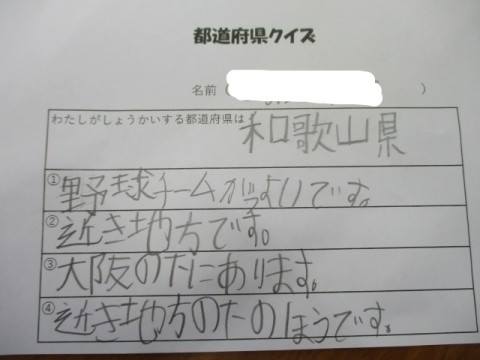 都道府県クイズ
名前（　　　）
わたしがしょうかいする都道府県は 和歌山県
①野球チームがつよいです。
②近き地方です。
③大阪のたにあります。
④近き地方のたのほうです。